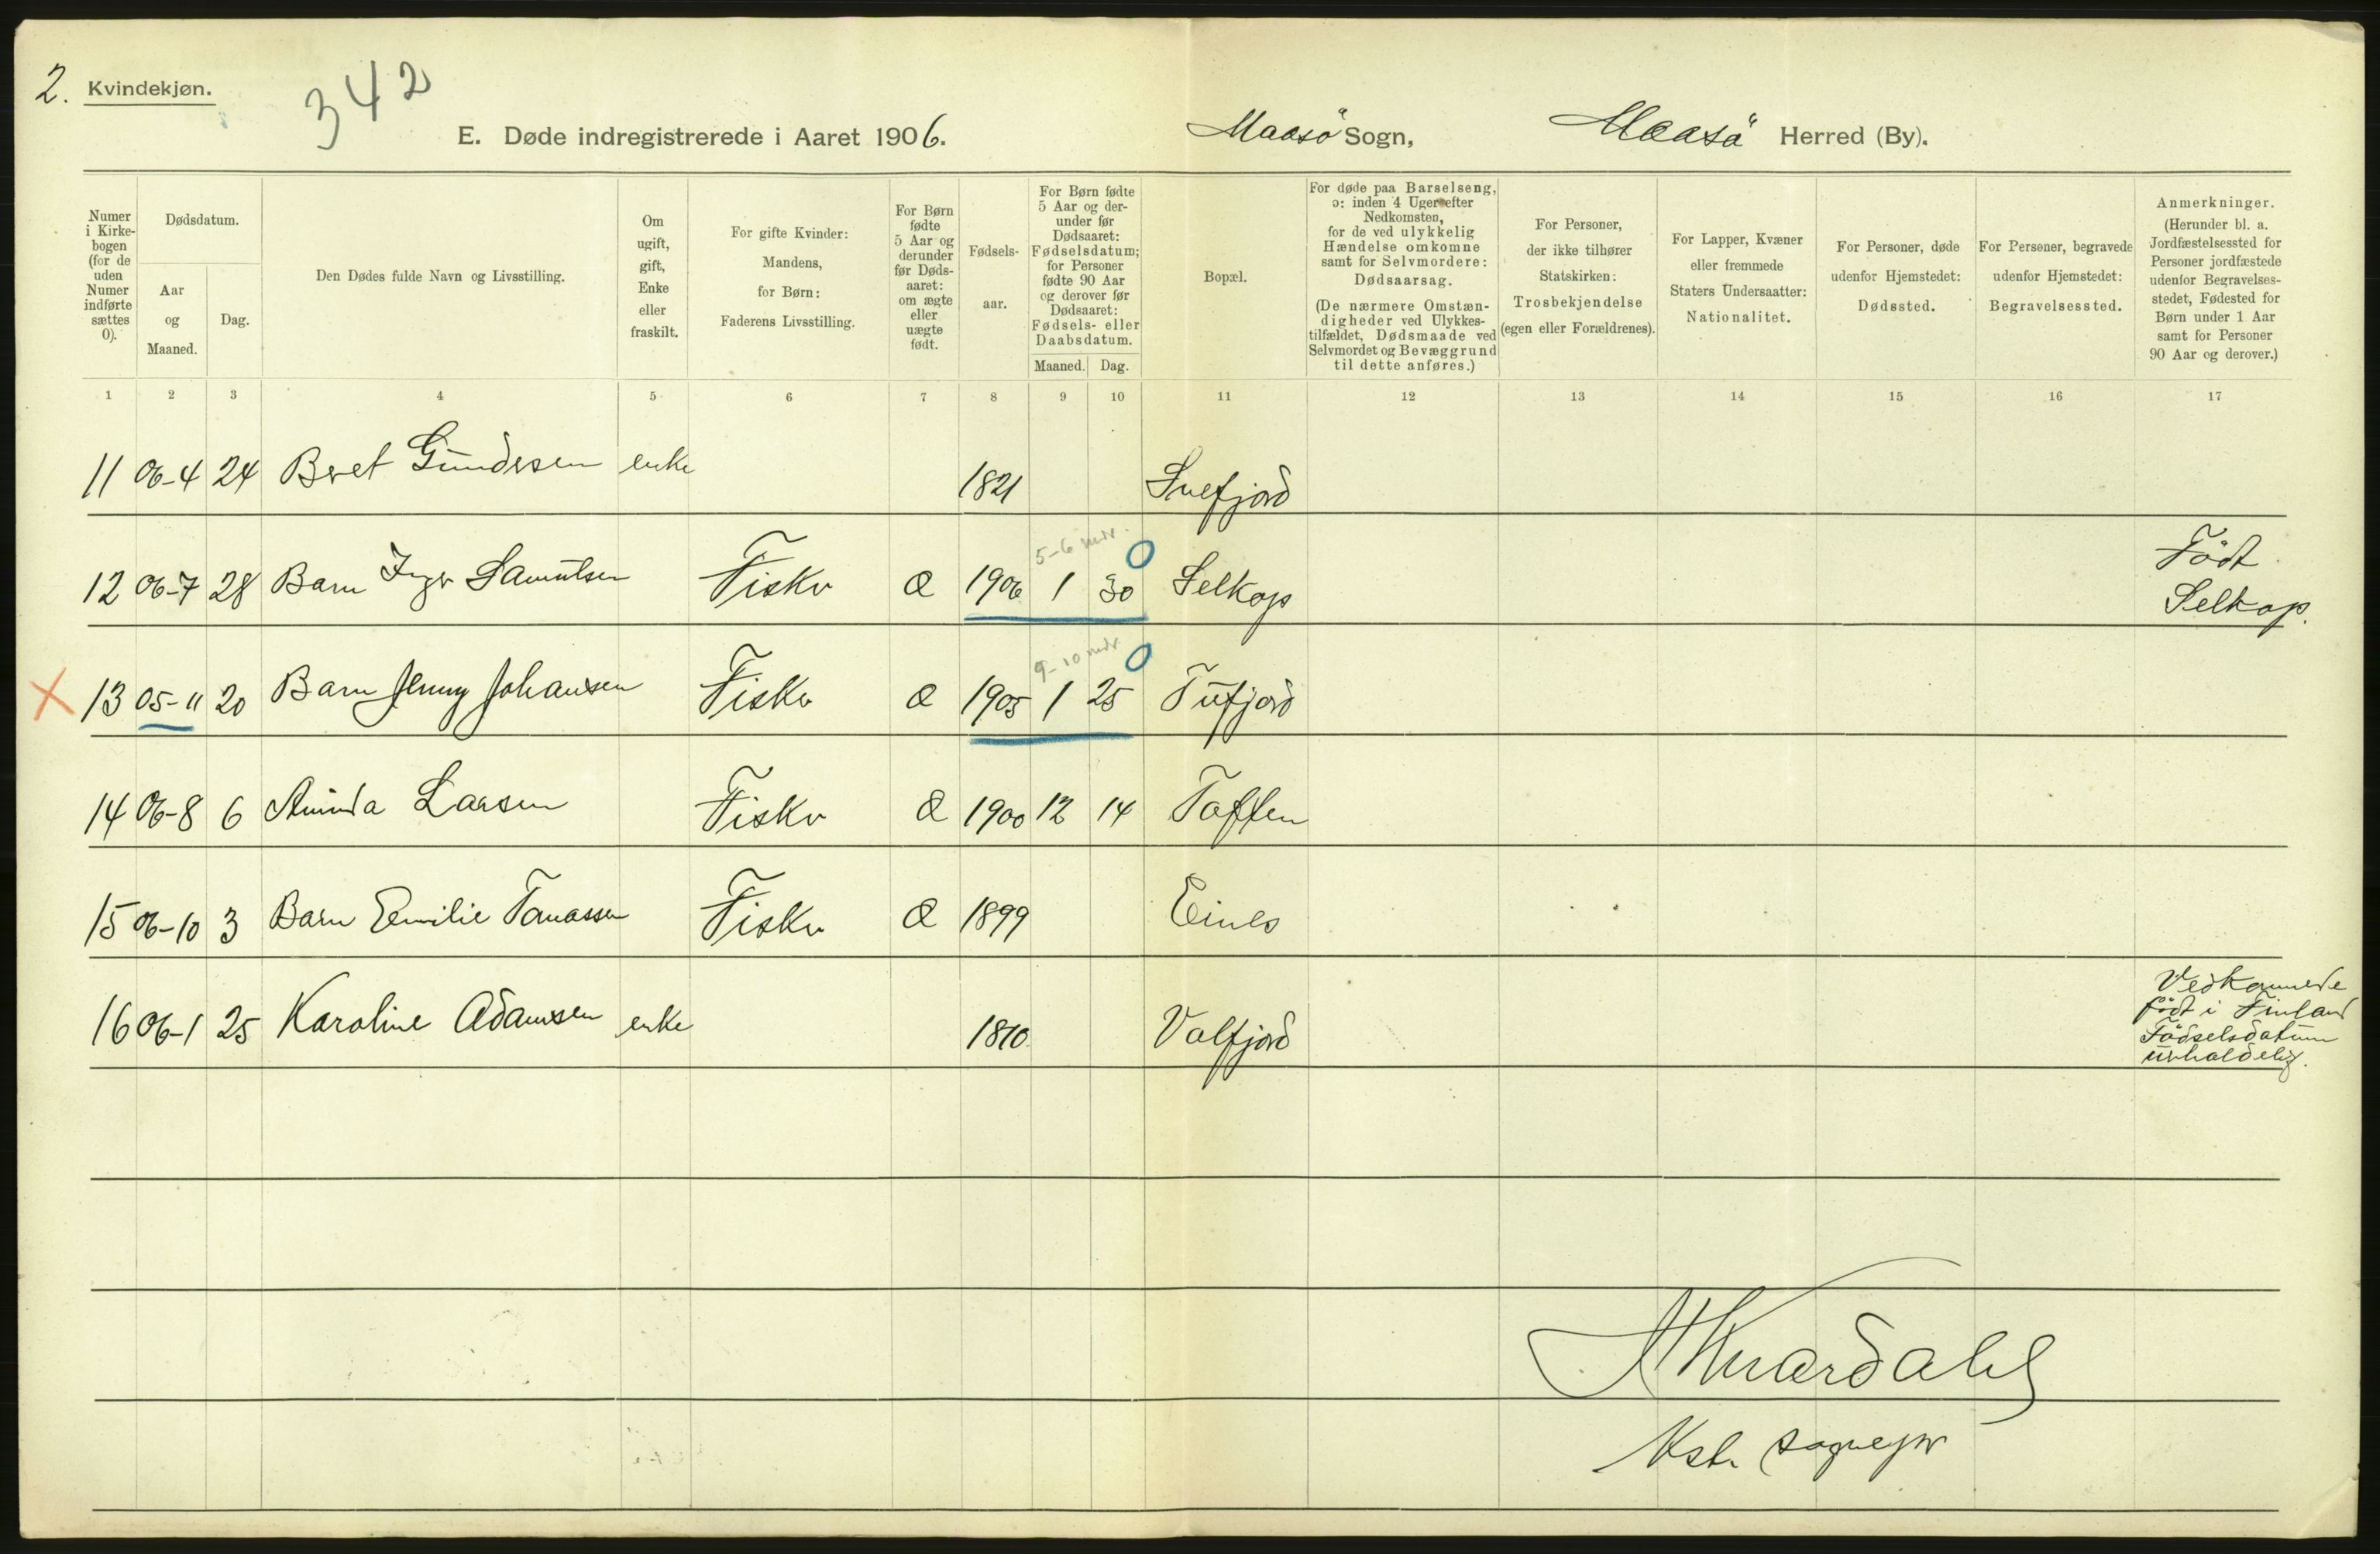 2. Kvindekjøn.
342
E. Døde indregistrerede i Aaret 1906. Maasö Sogn, Maasö Herred (By).
Numer i Kirkebogen (for de uden Numer indførte sættes 0).
Dødsdatum.
Aar og Maaned.
Dag.
Den Dødes fulde Navn og Livsstilling.
Om ugift, gift, Enke eller fraskilt.
For gifte Kvinder: Mandens, for Børn: Faderens Livsstilling.
For Børn fødte 5 Aar og derunder før Dødsaaret: om ægte eller uægte født.
Fødselsaar.
For Børn fødte 5 Aar og derunder før Dødsaaret: Fødselsdatum; for Personer fødte 90 Aar og derover før Dødsaaret: Fødsels- eller Daabsdatum.
Maaned. Dag.
Bopæl.
For døde paa Barselseng, ɔ: inden 4 Uger efter Nedkomsten, for de ved ulykkelig Hændelse omkomne samt for Selvmordere: Dødsaarsag.
(De nærmere Omstændigheder ved Ulykkestilfældet, Dødsmaade ved Selvmordet og Bevæggrund til dette anføres.)
For Personer, der ikke tilhører Statskirken: Trosbekjendelse (egen eller Forældrenes).
For Lapper, Kvæner eller fremmede Staters Undersaatter: Nationalitet.
For Personer, døde udenfor Hjemstedet: Dødssted.
For Personer, begravede udenfor Hjemstedet: Begravelsessted.
Anmerkninger.
(Herunder bl. a. Jordfæstelsessted for Personer jordfæstede udenfor Begravelsesstedet, Fødested for Børn under 1 Aar samt for Personer 90 Aar og derover.)
1 2 3 4 5 6 7 8 9 10 11 12 13 14 15 16 17
11 06-4 24 Beret Gundersen enke 1821 Snefjord
5-6 mdr. 0
12 06-7 28 Barn Inger Samulsen Fisker Æ 1906 1 30 Selkop Födt
Selkop.
9-10 mdr 0
X 13 05-11 20 Barn Jenny Johansen Fisker Æ 1905 1 25 Tufjord
14 06-8 6 Larsen Fisker Æ 1900 12 14
15 06-10 3 Barn Emilie Tomassen Fisker Æ 1899 Eines
16 06-1 25 Karoline Adamsen enke 1810 Valfjord Vedkommende
födt i Finland
Födselsdatum
uerholdelig.
Kst. sognepr